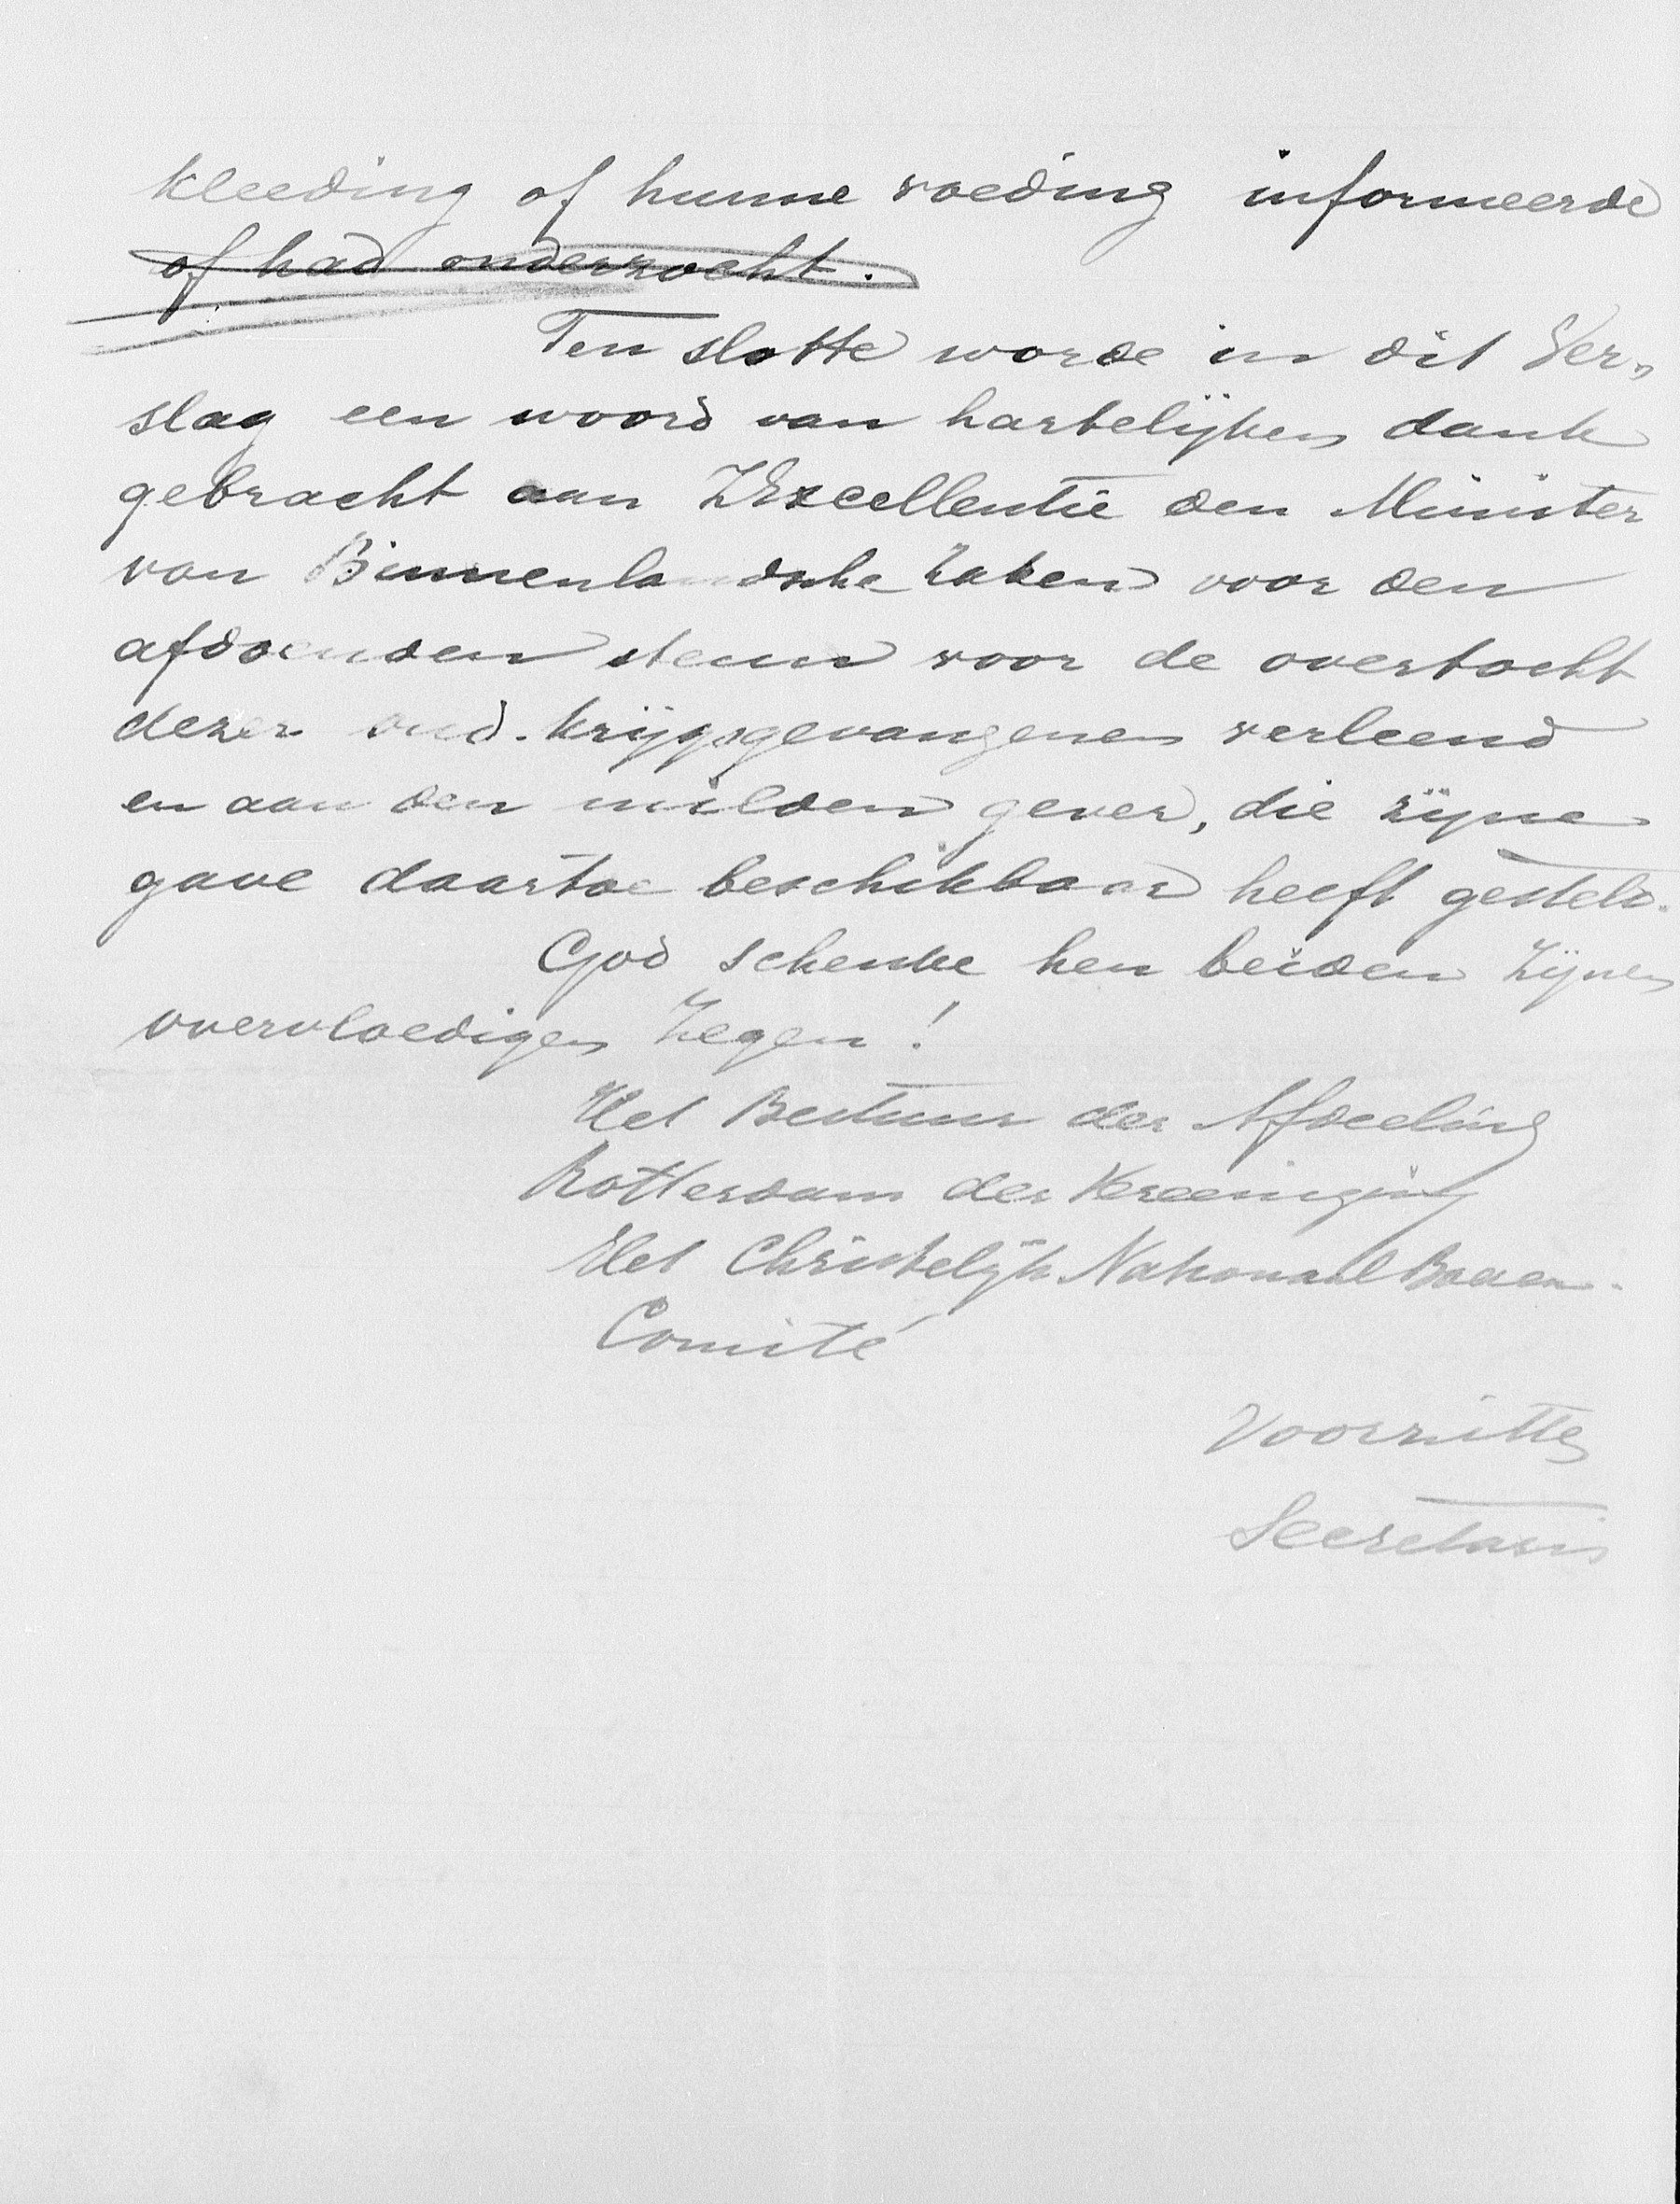 kleeding of hunne voeding informeerde
of had onderzocht.
Ten slotte worde in dit Ver-
slag een woord van hartelijken dank
gebracht aan ZExcellentie den Minister
van Binnenlandsche Zaken voor den
afdoenden steun voor de overtocht
dezer oud-krijgsgevangenen verleend
en aan den milden gever, die zijne
gave daartoe beschikbaar heeft gesteld.
God schenke hen beiden Zijnen
overvloedigen Zegen!
Het Bestuur der Afdeeling
Rotterdam der Vereeniging
Het Christelijk Nationaal Boeren-
Comité
Voorzitter
Secretaris